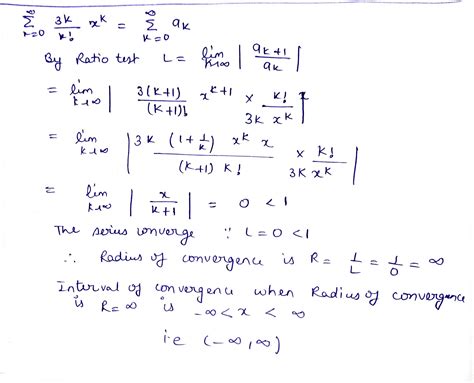 ∞ ∑ k=0 3k/k! x^k = ∞ ∑ k=0 a_k
By Ratio test L = lim k→∞ | a_k+1 / a_k |
= lim k→∞ | 3(k+1)/(k+1)! x^k+1 × k!/3k x^k |
= lim k→∞ | 3k (1 + 1/k) x^k x / (k+1) k! × k!/3k x^k |
= lim k→∞ | x/k+1 | = 0 < 1
The series converge ∵ L = 0 < 1
∴ Radius of convergence is R = 1/L = 1/0 = ∞
Interval of convergence when Radius of convergence
is R = ∞ is -∞ < x < ∞
i.e (-∞, ∞)